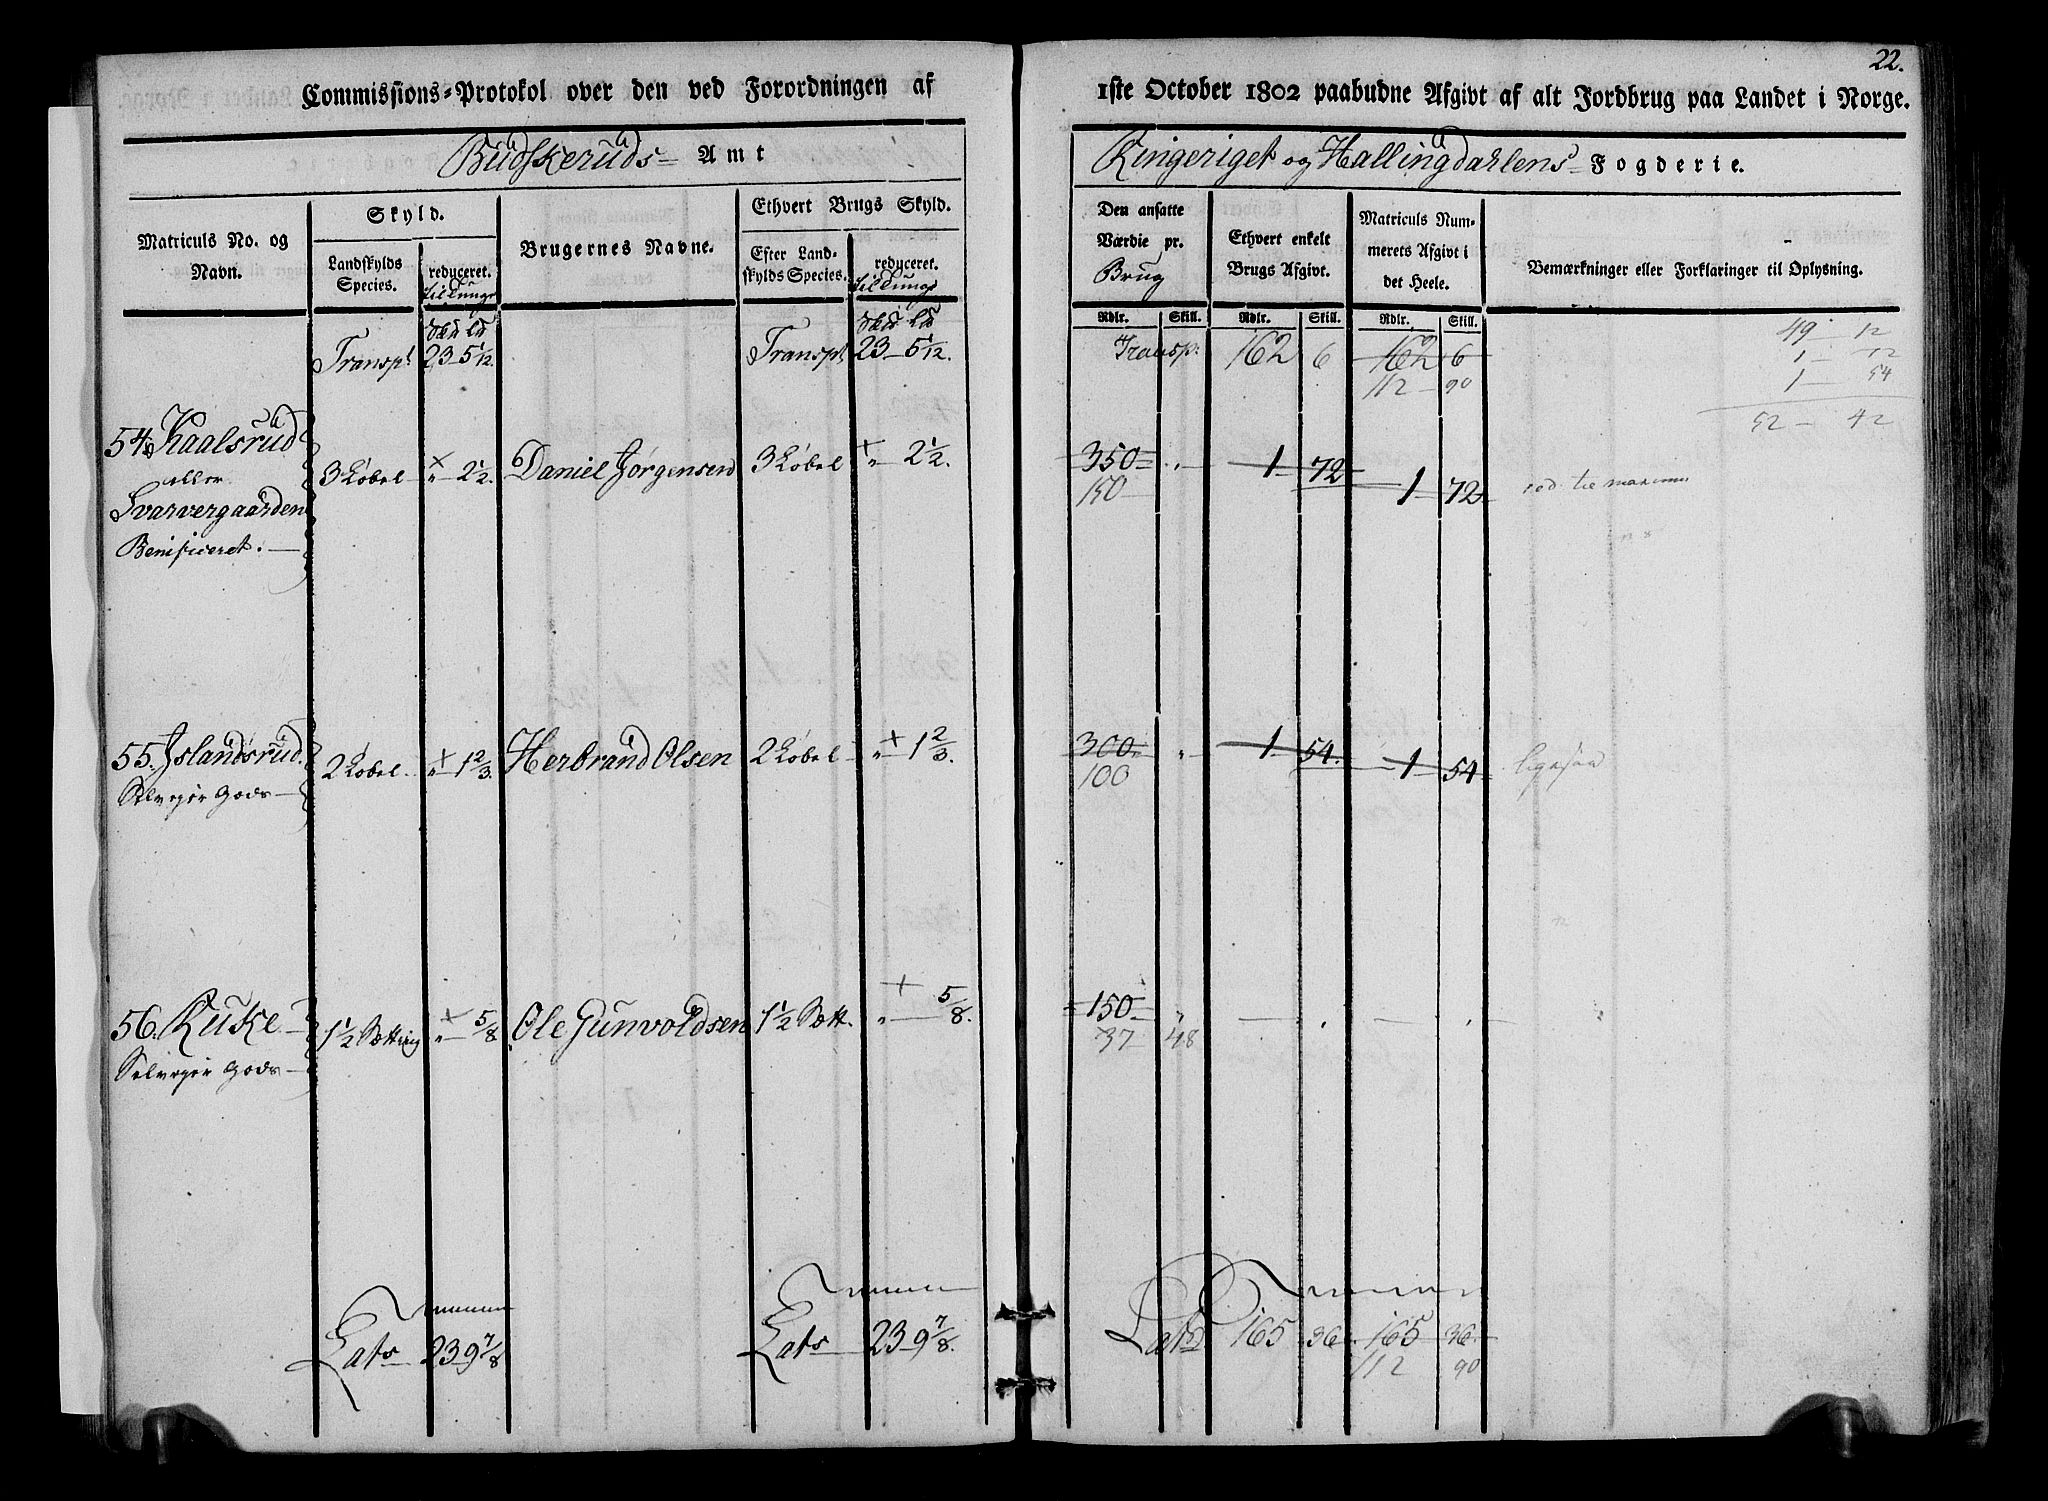 22.
Commissions-Protokol over den ved Forordningen af 1ste October 1802 paabudne Afgivt af alt Jordbrug paa Landet i Norge.
Budskeruds Amt
Ringeriget og Hallingdahlens Fogderie.
Matriculs No. og Navn.
Skyld.
Landskylds Species.
reduceret.
til Tunge
Brugernes Navne.
Ethvert Brugs Skyld.
Efter Landskylds Species.
reduceret.
til Tunge
Den ansatte Værdie pr. Brug
Ethvert enkelt Brugs Afgivt.
Matriculs Nummerets Afgivt i det Heele.
Bemærkninger eller Forklaringer til Oplysning.
Rdlr. Skill. Rdlr. Skill. Rdlr. Skill.
Transpt 23 5 1/12. Transpt 23 5 1/12. Transp: 162 6 162 6
112 90
49 12
1 72
1 54
52 42
54 Kaalsrud 3 Løbel " 2 1/2. Daniel Jørgensen 3 Løbel " 2 1/2. 350 " 1 72 1 72
eller
Svarvergaarden
Benificeret.
150
55. Islandsrud 2 Løbel " 1 2/3 Herbrand Olsen 2 Løbel " 1 2/3. 300 " 1 54. 1 54
Selveyer Gods
100
56. Ruke 1 1/2 Sætting " 5/8 Ole Gunvoldsen 1 1/2 Sætt. " 5/8. 150 "
Selveyer Gods
37 48
Lats 23 9 7/8 Lats 23 9 7/8. Lats 165 36 165 36
112 90